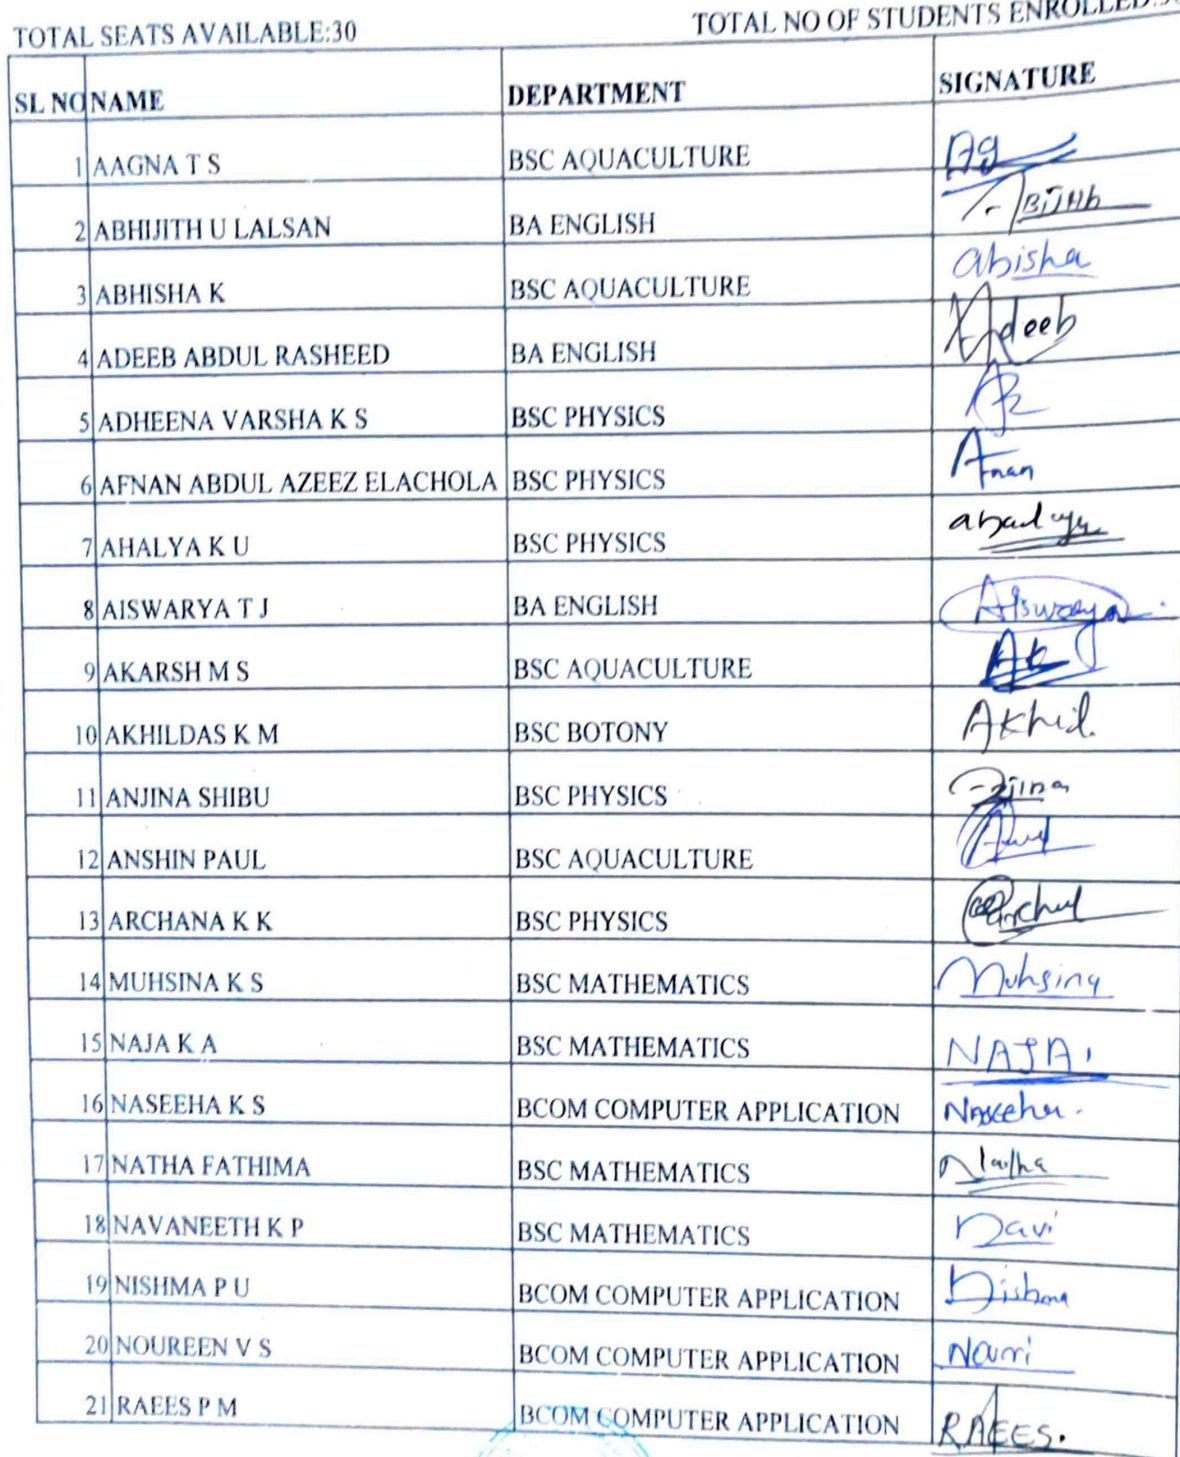 TOTAL SEATS AVAILABLE:30 TOTAL NO OF STUDENTS ENROLLED:
SL NO NAME DEPARTMENT SIGNATURE
1 AAGNA T S BSC AQUACULTURE Ag
2 ABHIJITH U LALSAN BA ENGLISH
3 ABHISHA K BSC AQUACULTURE abisha
4 ADEEB ABDUL RASHEED BA ENGLISH Adeeb
5 ADHEENA VARSHA K S BSC PHYSICS
6 AFNAN ABDUL AZEEZ ELACHOLA BSC PHYSICS Afnan
7 AHALYA K U BSC PHYSICS
8 AISWARYA T J BA ENGLISH
9 AKARSH M S BSC AQUACULTURE Ak
10 AKHILDAS K M BSC BOTONY Akhil.
11 ANJINA SHIBU BSC PHYSICS
12 ANSHIN PAUL BSC AQUACULTURE
13 ARCHANA K K BSC PHYSICS
14 MUHSINA K S BSC MATHEMATICS Muhsina
15 NAJA K A BSC MATHEMATICS NAJA
16 NASEEHA K S BCOM COMPUTER APPLICATION Naseeha.
17 NATHA FATHIMA BSC MATHEMATICS Natha
18 NAVANEETH K P BSC MATHEMATICS Navi
19 NISHMA P U BCOM COMPUTER APPLICATION Nishma
20 NOUREEN V S BCOM COMPUTER APPLICATION
21 RAEES P M BCOM COMPUTER APPLICATION RAEES.